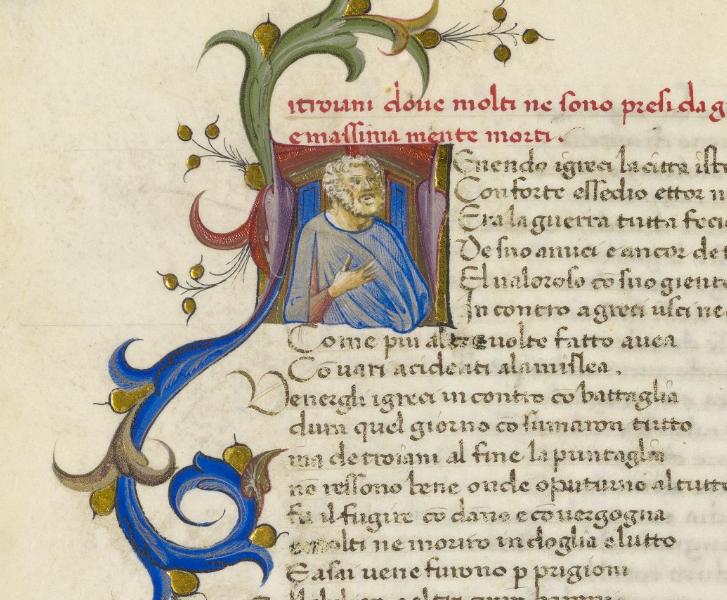 itroiani doue molti ne sono presi da g
e massima mente morti.
Euendo igreci la citta istr
Con forte essedio ettor n
Era la guerra tutta feci
De suo amici e ancor de
El ualoroso co suo giente
In contro a greci usci ne
Come piu altre uolte fatto auea
Co uari acidenti alamislea.
Venergli igreci in contro co battaglia
dura quel giorno co sumaron tutto
ma de troiani al fine la puntaglia
no ressono bene onde oputurno al tutto
fu il fugire co dano e co uergogna
e molti ne moriro in doglia e lutto
E asai uene furono p prigioni